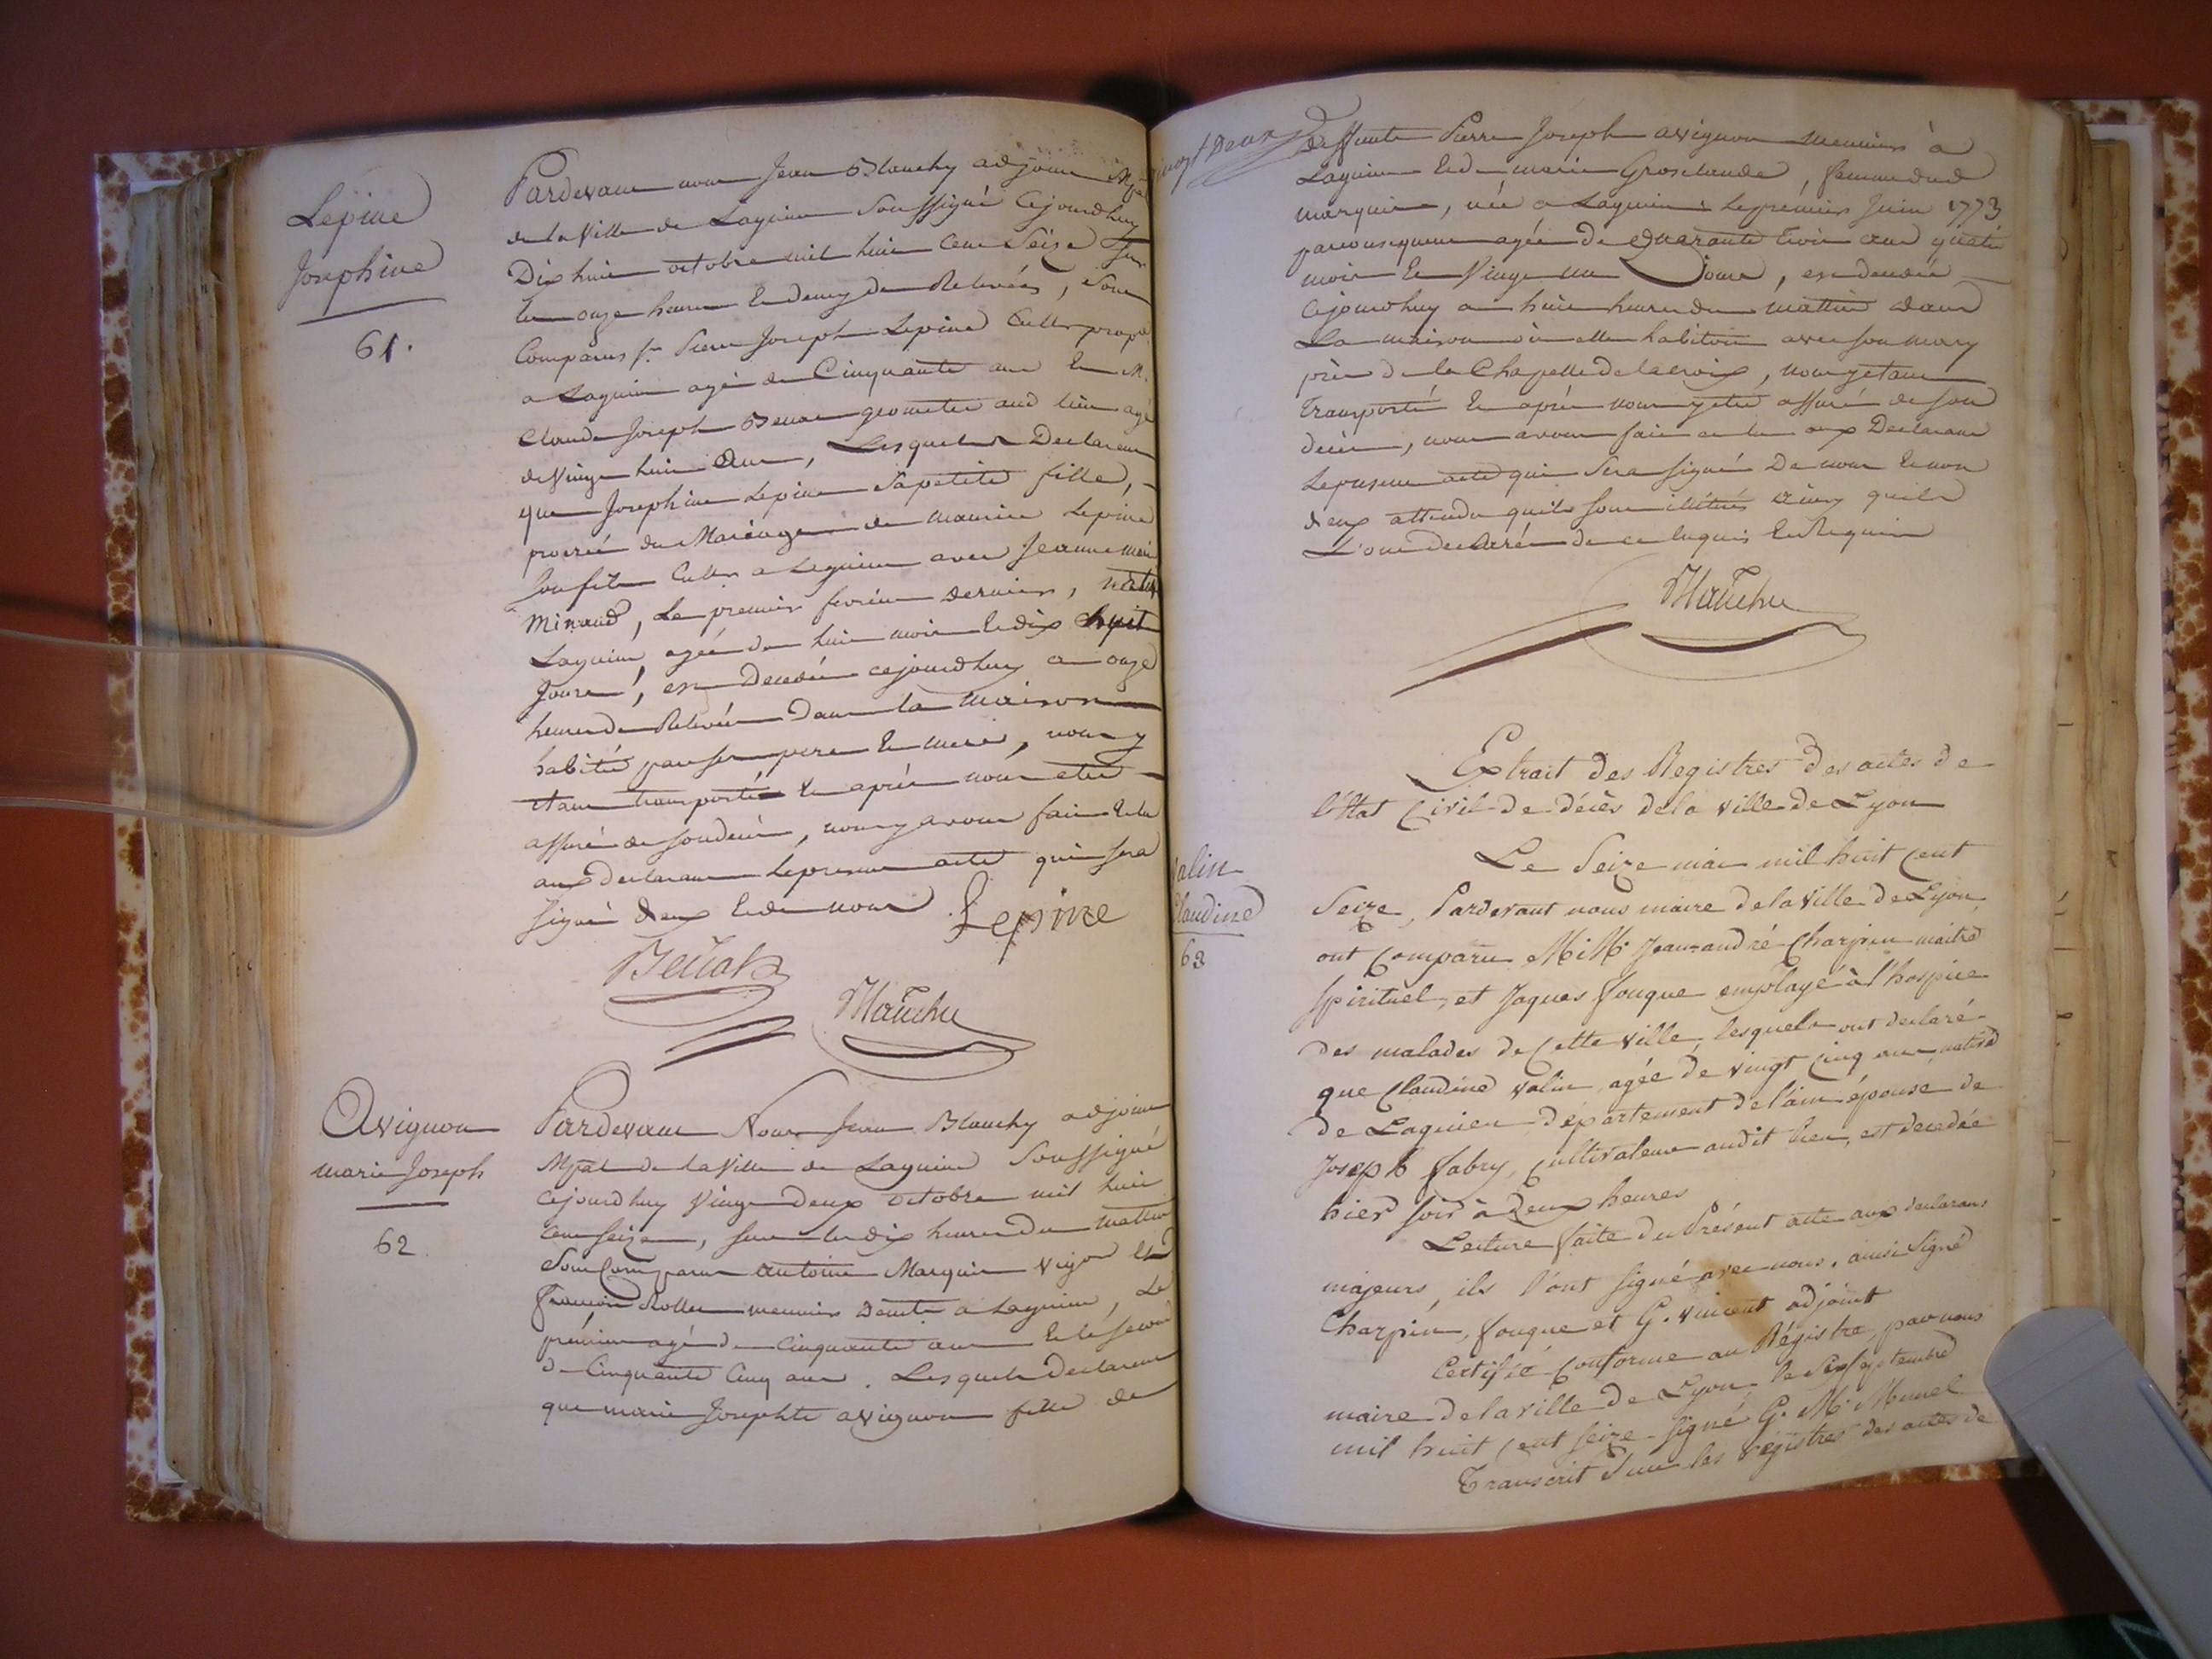 Lepine
Josephine
61.
Pardevant nous Jean Blanchy adjoint Mpal
de la Ville de Lagnieu Soussigné Cejourdhuy
Dix huit octobre mil huit Cent Seize Sur
les onze heures et demy de Relevées, Sont
Comparus Sr. Pierre Joseph Lepine Cultr propre
a Lagnieu agé de Cinquante ans et M.
Claude Joseph Benat geometre aud lieu agé
de Vingt huit ans, Lesquels Declarent
que Josephine Lepine Sa petite fille,
procréé du Mariage de Maurice Lepine
Son fils Cultr a Lagnieu avec Jeanne Marie
Minaud, Le premier fevrier dernier,
Lagnieu, agée de huit mois et dix huit
Jours, est Decedée cejourdhuy a onze
heures de Relevée Dans la Maison
habitée par ses pere et mere, nous y
étant transporté et après nous etre
assuré de son decès, nous y avons fait et lu
aux declarants le present acte qui sera
Signé d'eux et de nous Lepine
Benat
Blanchy
Avignon
Marie Joseph
62.
Pardevant Nous Jean Blanchy adjoint
Mpal de la Ville de Lagnieu Soussigné
Cejourdhuy Vingt deux octobre mil huit
Cent Seize, sur les dix heures du mattin
Sont Comparus Antoine Marquis vigon et
François Rollet meunier demt a Lagnieu, Le
prémier agé de Cinquante ans et le second
de Cinquante Cinq ans. Lesquels Declarent
que marie Josephte avignon fille de
vingt Deux
deffunts Pierre Joseph avignon Meunier à
Lagnieu et de marie Grosclaude, femme dud
marquis, née a Lagnieu Le premier Juin 1773
par consequent agée De Quarante trois ans quatre
mois et Vingt un Jours, est decedée
Cejourdhuy a huit heures du mattin dans
La maison où elle habitoit avec son mary
près de la Chapelle de la croix, nous y etant
Transporté et après nous y etre assuré de son
decès, nous avons fait et lu aux Declarants
Le present acte qui Sera Signé De nous et non
d'eux attendu quils sont illitérés ainsy quils
L'ont declaré de ce enquis et Requis
Blanchy
Extrait des Registres des actes de
l'Etat Civil de décès de la ville de Lyon
Valin
Claudine
63
Le Seize mai mil huit cent
Seize, Pardevant nous maire de la Ville de Lyon,
ont Comparu M.M. Jean andré Charpin maitre
Spirituel, et Jaques fouque employé à l'hospice
des malades de Cette ville, lesquels ont declaré
que Claudine valin, agée de vingt cinq ans, native
de Lagnieu département de l'ain épouse de
Joseph fabry, Cultivateur audit lieu, est decedée
hier soir à Deux heures
Lecture faite du Présent acte aux declarans
majeurs, ils l'ont signé avec nous, ainsi Signé
Charpin, fouque et G. vincent adjoint
Certifié Conforme au Régistre, par nous
maire de la ville de Lyon, le Six Septembre
mil huit cent seize. Signé G. M.
Transcrit Sur les régistres des actes de